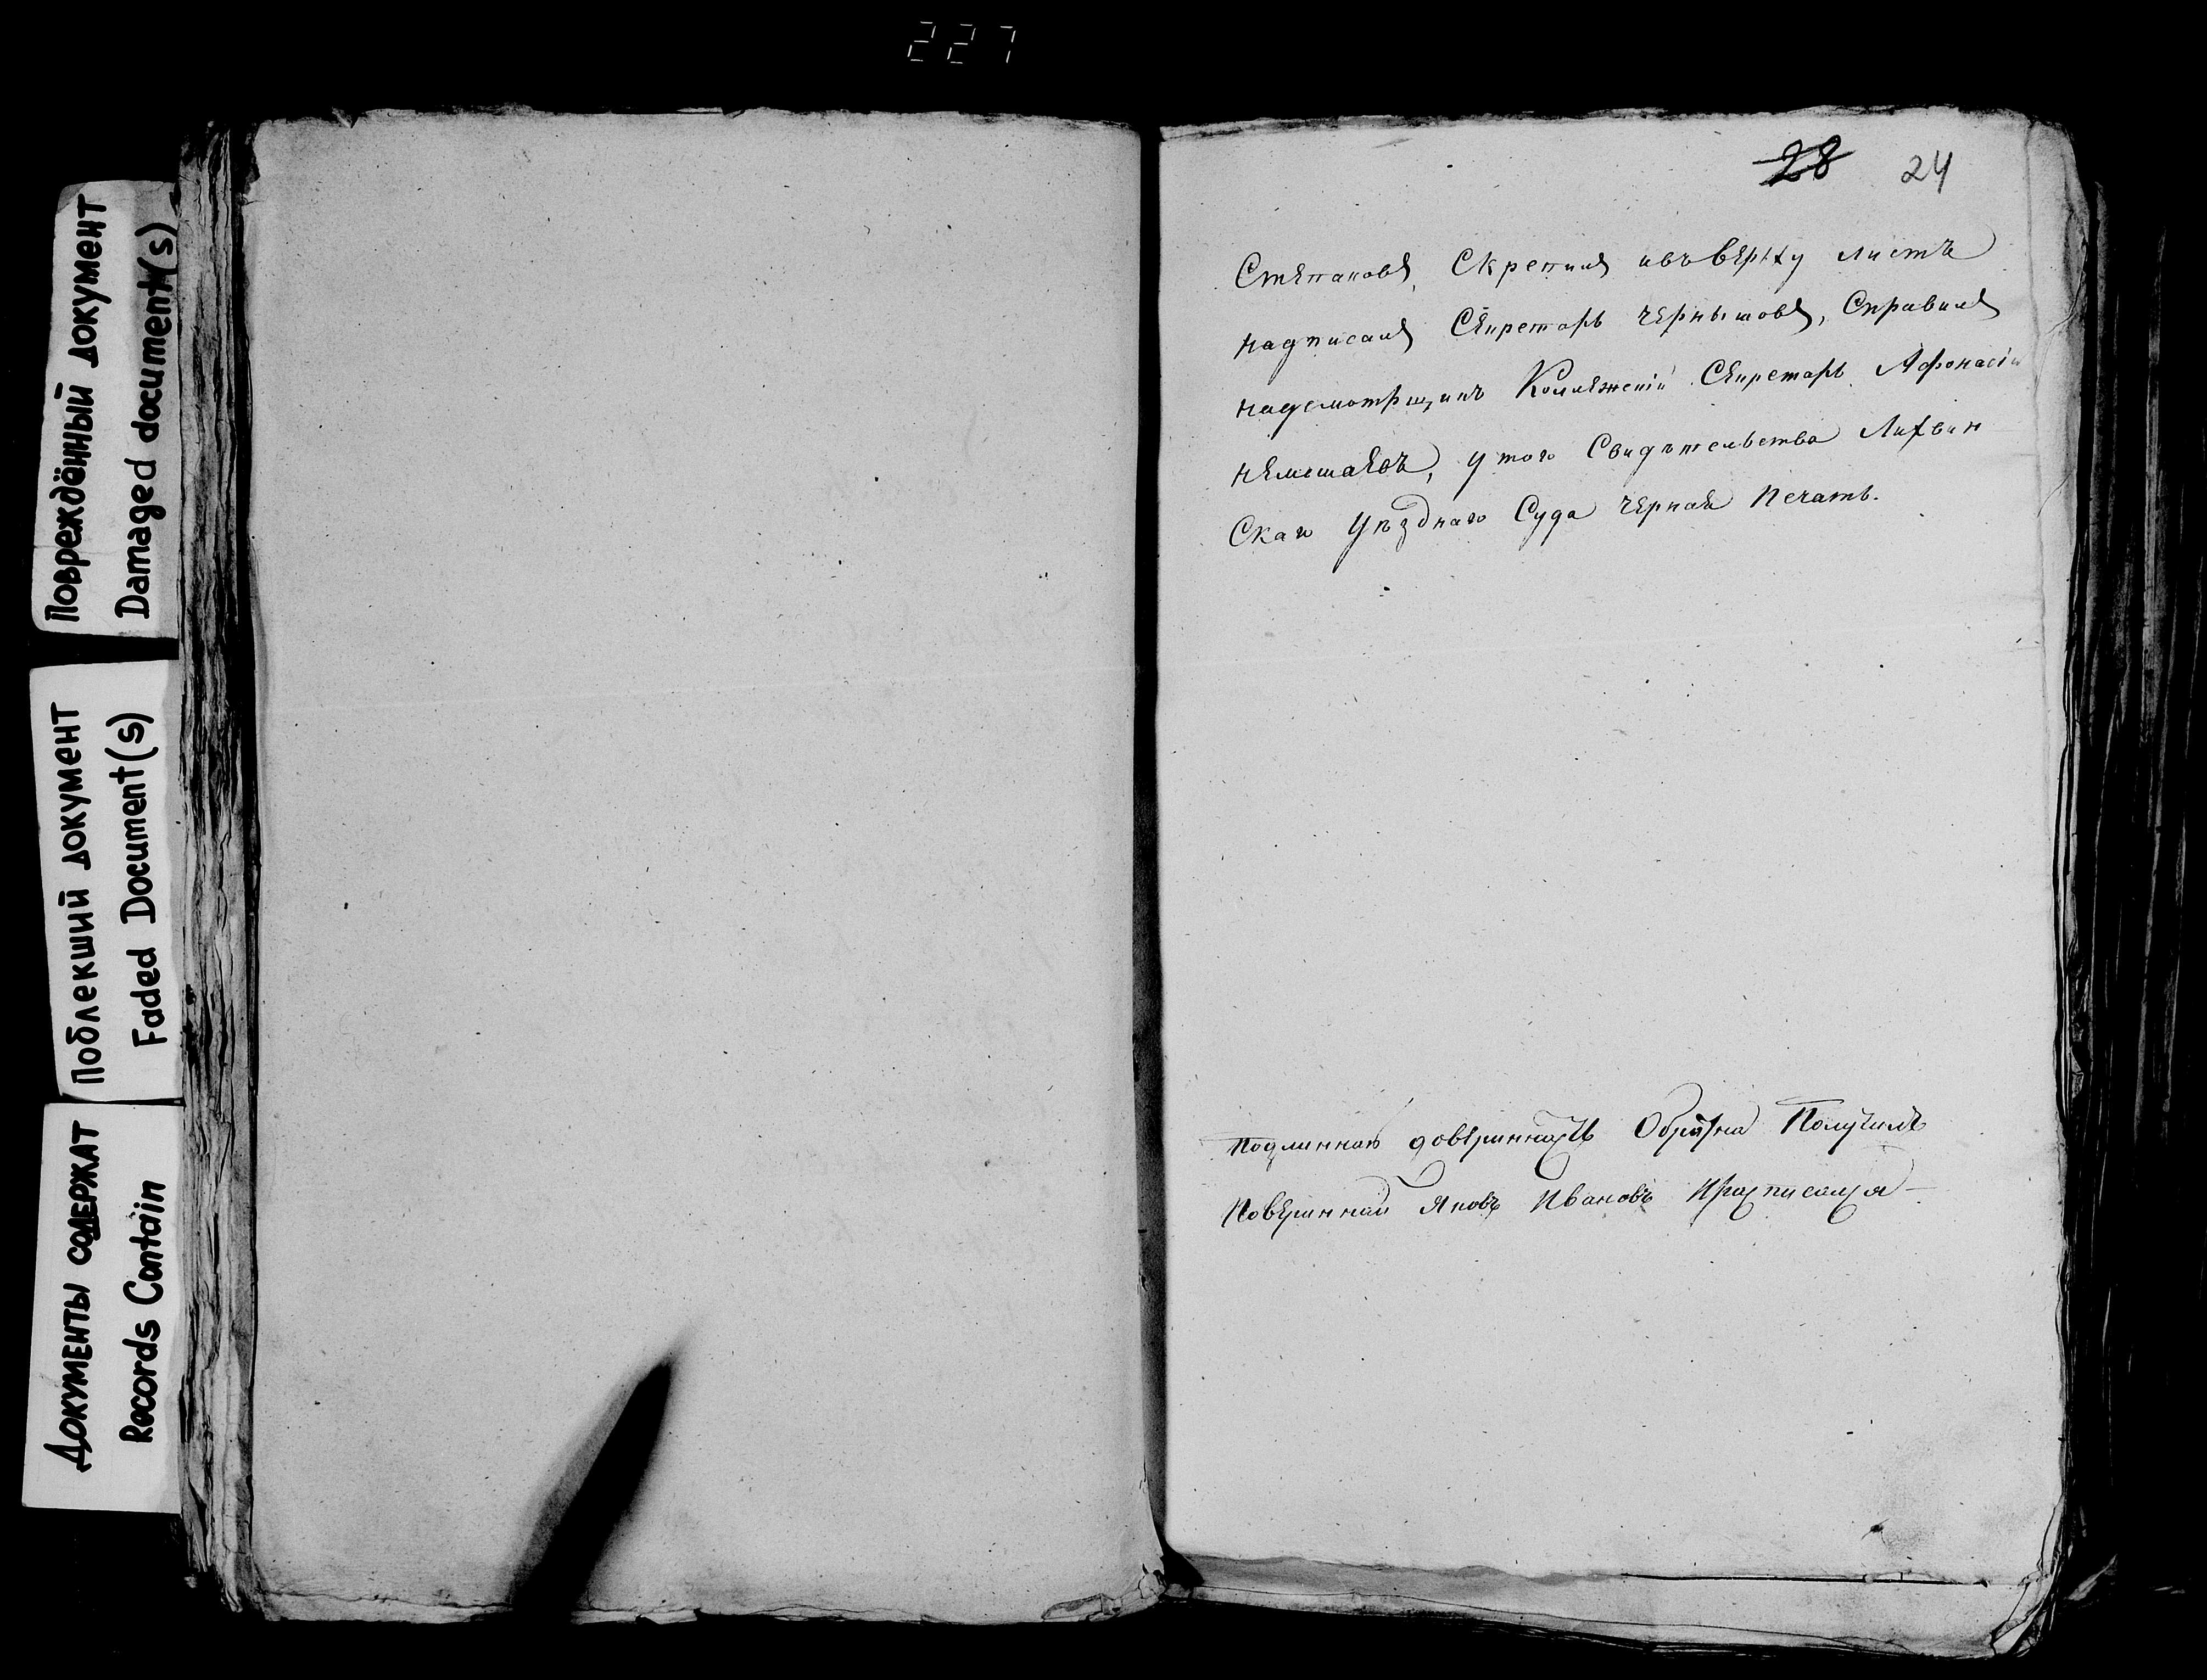 227
Повреждённый документ
Damaged document(s)
Поблекший документ
Faded Document(s)
Документы содержат
Records Contain
28 24
Степановъ, Скрепилъ ивъверьху листъ
надписалъ Секретарь чернышовъ, Справилъ
надсмотрщикъ Коллежскiй Секретарь Афонасiи
немшаевъ, у того Свидѣтельства Лихвин
Скаго Уѣзднаго Суда черная печать.
Подлинною доверинность Обратна Получилъ
Поверинной Яковъ Ивановъ Ирасписался